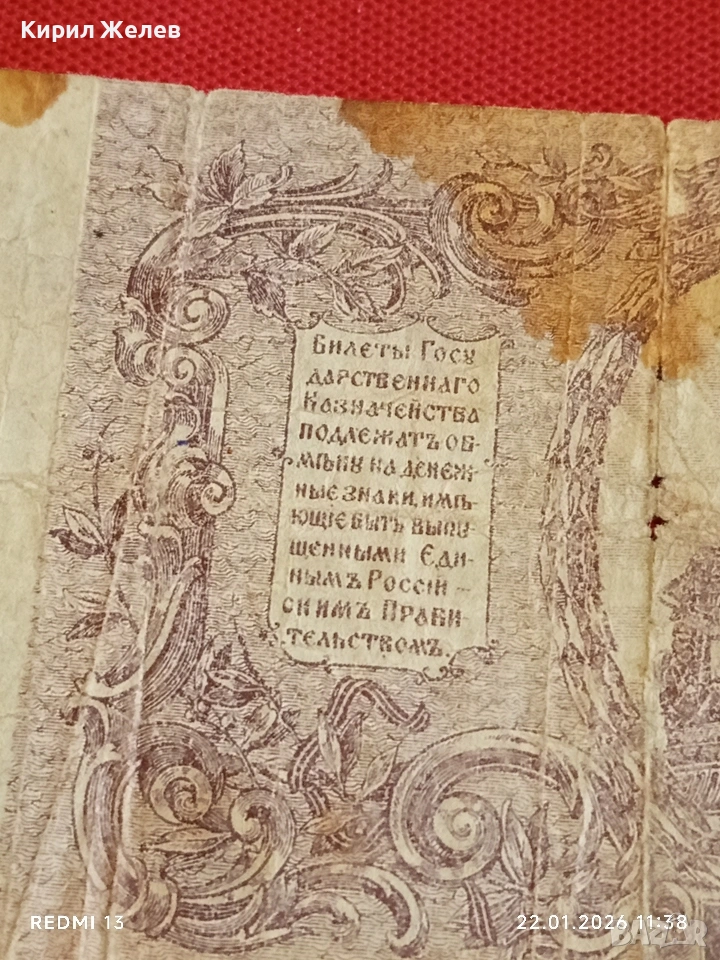 Кирил Желев
Билеты Госу
дарственнаго
Казначейства
подлежатъ об-
мѣну на денеж-
ные знаки, имѣ-
ющіе быть выпу
щенными Еди-
нымъ Россій –
скимъ Прави-
тельствомъ.
REDMI 13
22.01.2026 11:38
BAZAR